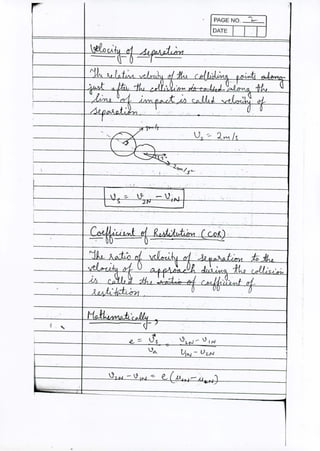 PAGE NO 2
DATE
Velocity of separation
The relative velocity of the colliding points along
just after the collision along the
line of impact is called velocity of
separation.
Us = 2 m/s
2 m/s
Us = U2N - U1N
Coefficient of Restitution (COR)
The ratio of velocity of separation to the
velocity of approach during the collision
is called the ratio of coefficient of
restitution.
Mathematically,
e = Us/Ua = (U2N - U1N)/(U1N - U2N)
U2N - U1N = e (u1N - u2N)